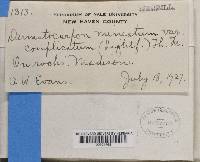 1313.
HERBARIUM OF YALE UNIVERSITY
NEW HAVEN COUNTY
Dermatocarpon miniatum var.
complicatum (Lightf.) Th. Fr.
On rocks. Madison.
A. W. Evans. July 13, 1927.